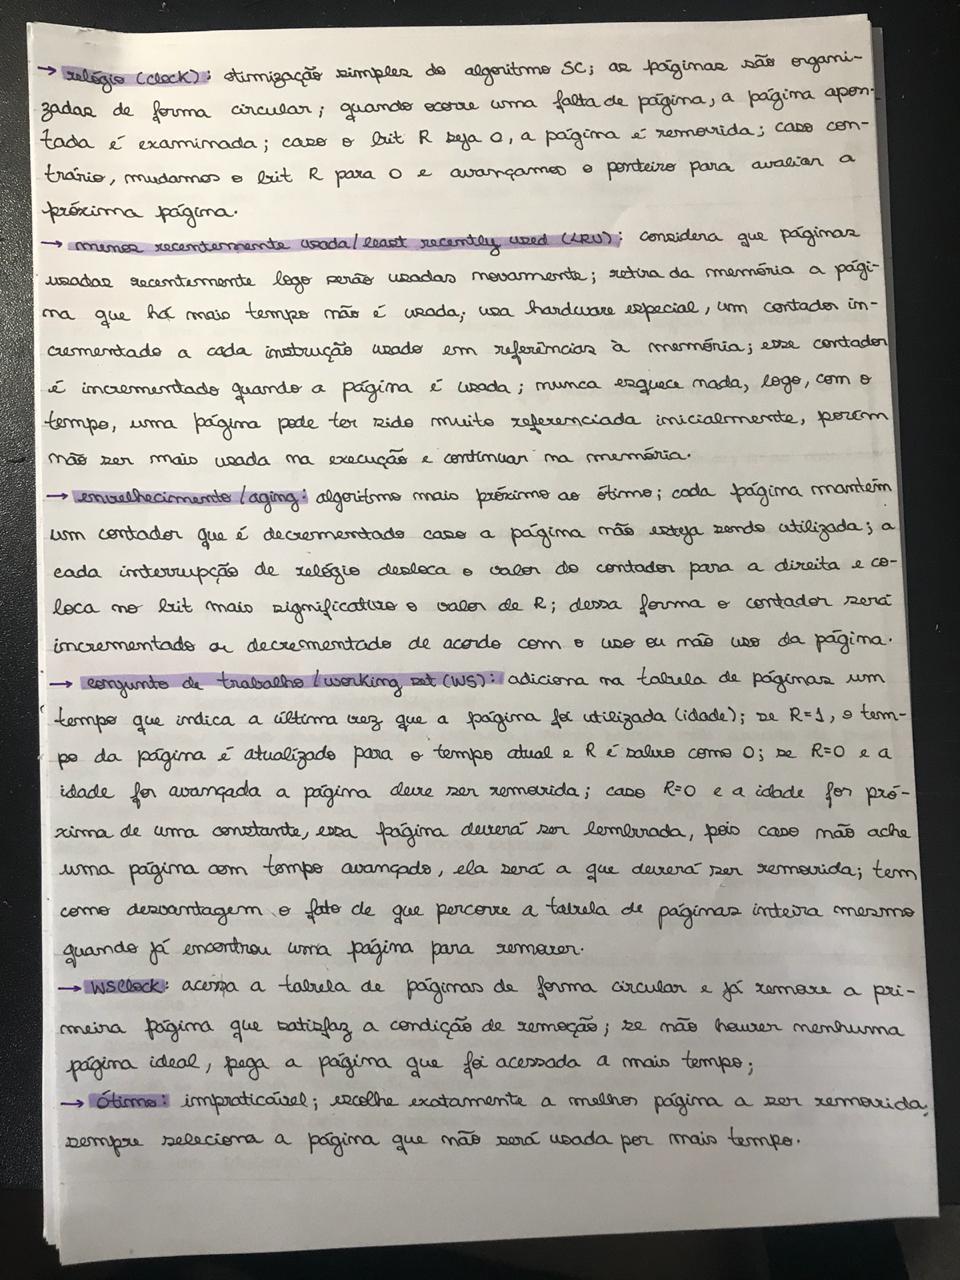 → relógio (clock): otimização simples do algoritmo SC; as páginas são organi-
zadas de forma circular; quando ocorre uma falta de página, a página apon-
tada é examinada; caso o bit R seja 0, a página é removida; caso con-
trário, mudamos o bit R para 0 e avançamos o ponteiro para avaliar a
próxima página.
→ menos recentemente usada/least recently used (LRU): considera que páginas
usadas recentemente logo serão usadas novamente; retira da memória a pági-
na que há mais tempo não é usada; usa hardware especial, um contador in-
crementado a cada instrução usado em referências à memória; esse contador
é incrementado quando a página é usada; nunca esquece nada, logo, com o
tempo, uma página pode ter sido muito referenciada inicialmente, porém
não ser mais usada na execução e continuar na memória.
→ envelhecimento/aging: algoritmo mais próximo ao ótimo; cada página mantém
um contador que é decrementado caso a página não esteja sendo utilizada; a
cada interrupção de relógio desloca o valor do contador para a direita e co-
loca no bit mais significativo o valor de R; dessa forma o contador será
incrementado ou decrementado de acordo com o uso ou não uso da página.
→ conjunto de trabalho/working set (WS): adiciona na tabela de páginas um
tempo que indica a última vez que a página foi utilizada (idade); se R=1, o tem-
po da página é atualizado para o tempo atual e R é salvo como 0; se R=0 e a
idade for avançada a página deve ser removida; caso R=0 e a idade for pró-
xima de uma constante, essa página deverá ser lembrada, pois caso não ache
uma página com tempo avançado, ela será a que deverá ser removida; tem
como desvantagem o fato de que percorre a tabela de páginas inteira mesmo
quando já encontrou uma página para remover.
→ WSClock: acessa a tabela de páginas de forma circular e já remove a pri-
meira página que satisfaz a condição de remoção; se não houver nenhuma
página ideal, pega a página que foi acessada a mais tempo;
→ Ótimo: impraticável; escolhe exatamente a melhor página a ser removida;
sempre seleciona a página que não será usada por mais tempo.